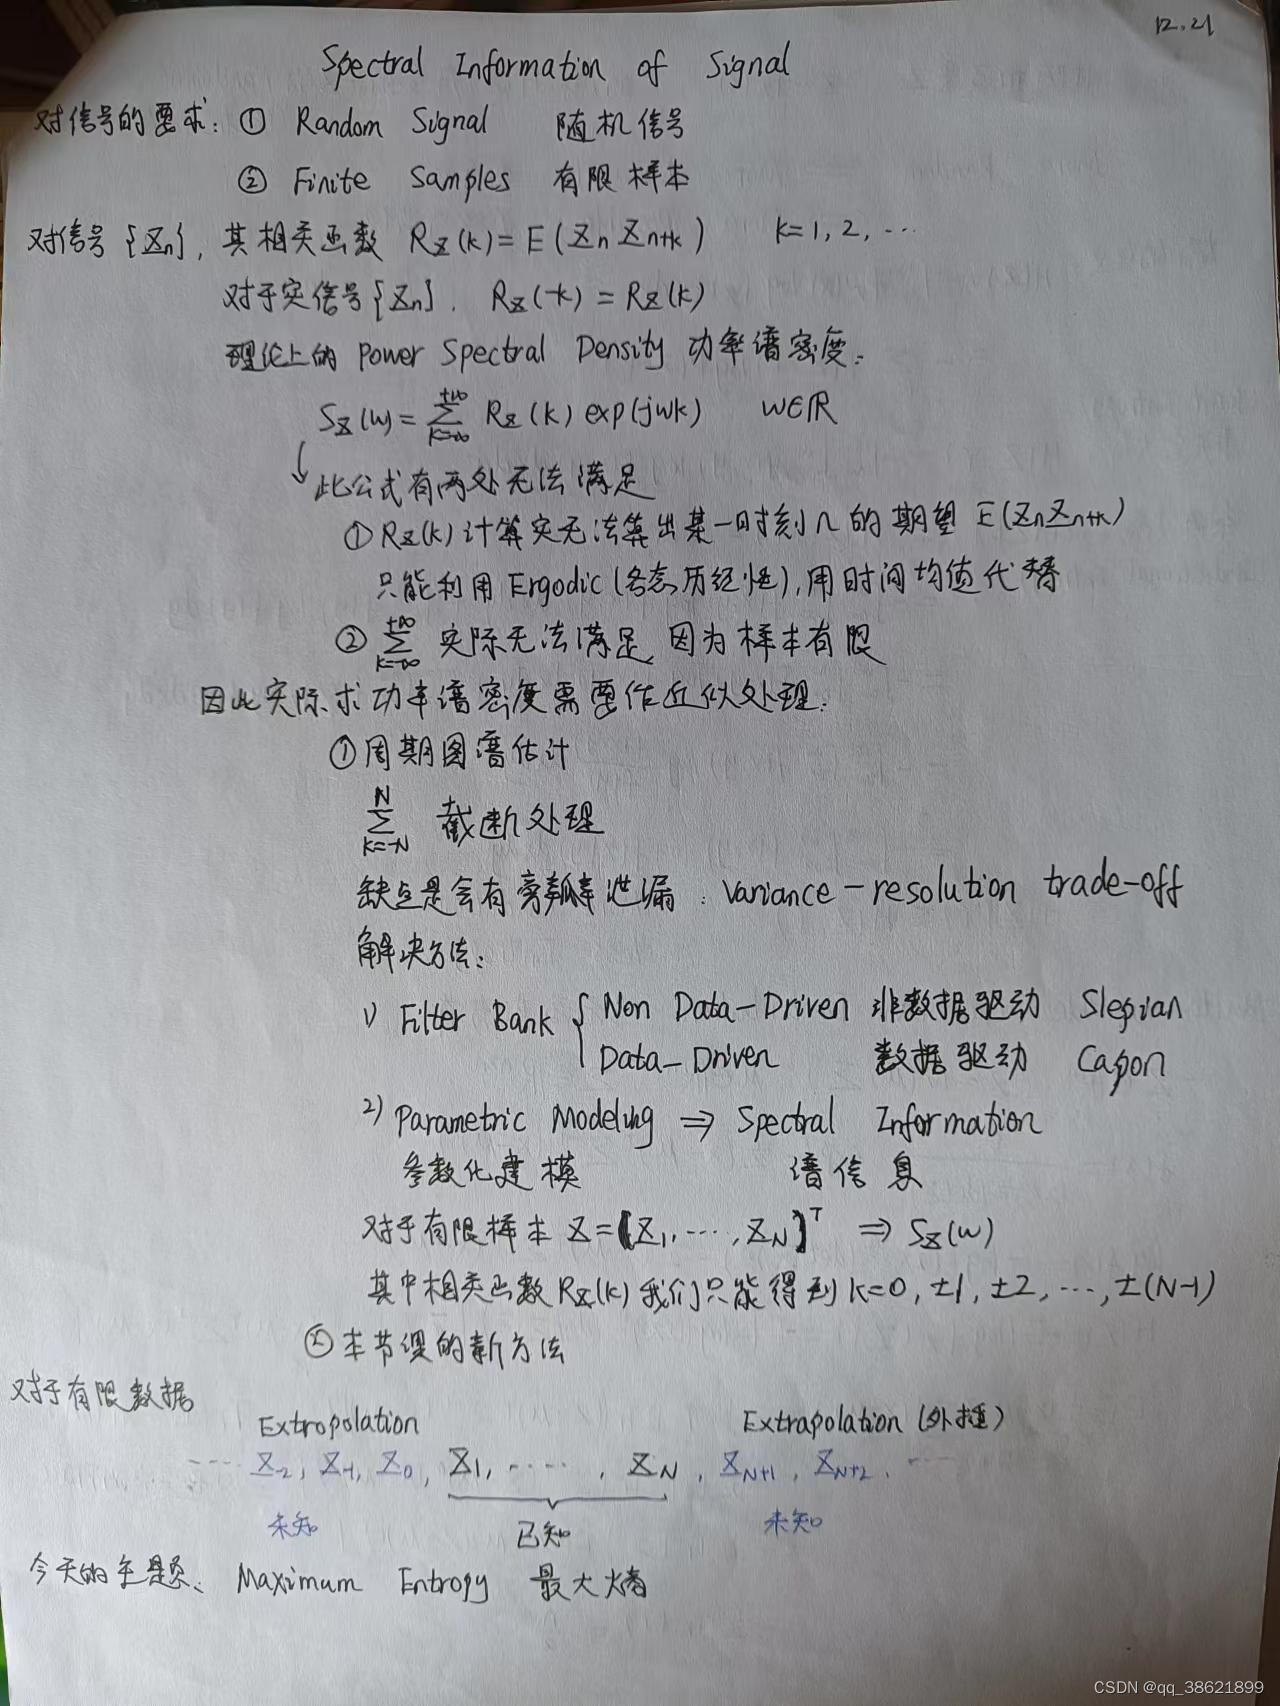 12.21
Spectral Information of Signal
对信号的要求: ① Random Signal 随机信号
② Finite Samples 有限样本
对信号{Zn}, 其相关函数 Rz(k)=E(Zn Zn+k) k=1,2,…
对于实信号{Zn}. Rz(-k)=Rz(k)
理论上的 Power Spectral Density 功率谱密度:
Sz(w)=∑_{k=-∞}^{+∞} Rz(k) exp(jwk) w∈R
↓此公式有两处无法满足
① Rz(k)计算实无法算出某一时刻n的期望 E(ZnZn+k)
只能利用Ergodic(各态历经性),用时间均值代替
② ∑_{k=-∞}^{+∞} 实际无法满足,因为样本有限
因此实际求功率谱密度需要作近似处理:
①周期图谱估计
∑_{k=-N}^{N} 截断处理
缺点是会有旁瓣泄漏: variance-resolution trade-off
解决方法:
1) Filter Bank { Non Data-Driven 非数据驱动 Slepian
Data-Driven 数据驱动 Capon
2) Parametric Modeling ⇒ Spectral Information
参数化建模 谱信息
对于有限样本 Z=[Z1,…,ZN]^T ⇒ Sz(w)
其中相关函数Rz(k)我们只能得到k=0,±1,±2,…,±(N-1)
②本节课的新方法
对于有限数据
Extropolation Extrapolation(外插)
…… Z-2, Z-1, Z0, Z1, ……, ZN, ZN+1, ZN+2. ……
未知 已知 未知
今天的主题: Maximum Entropy 最大熵
CSDN @qq_38621899